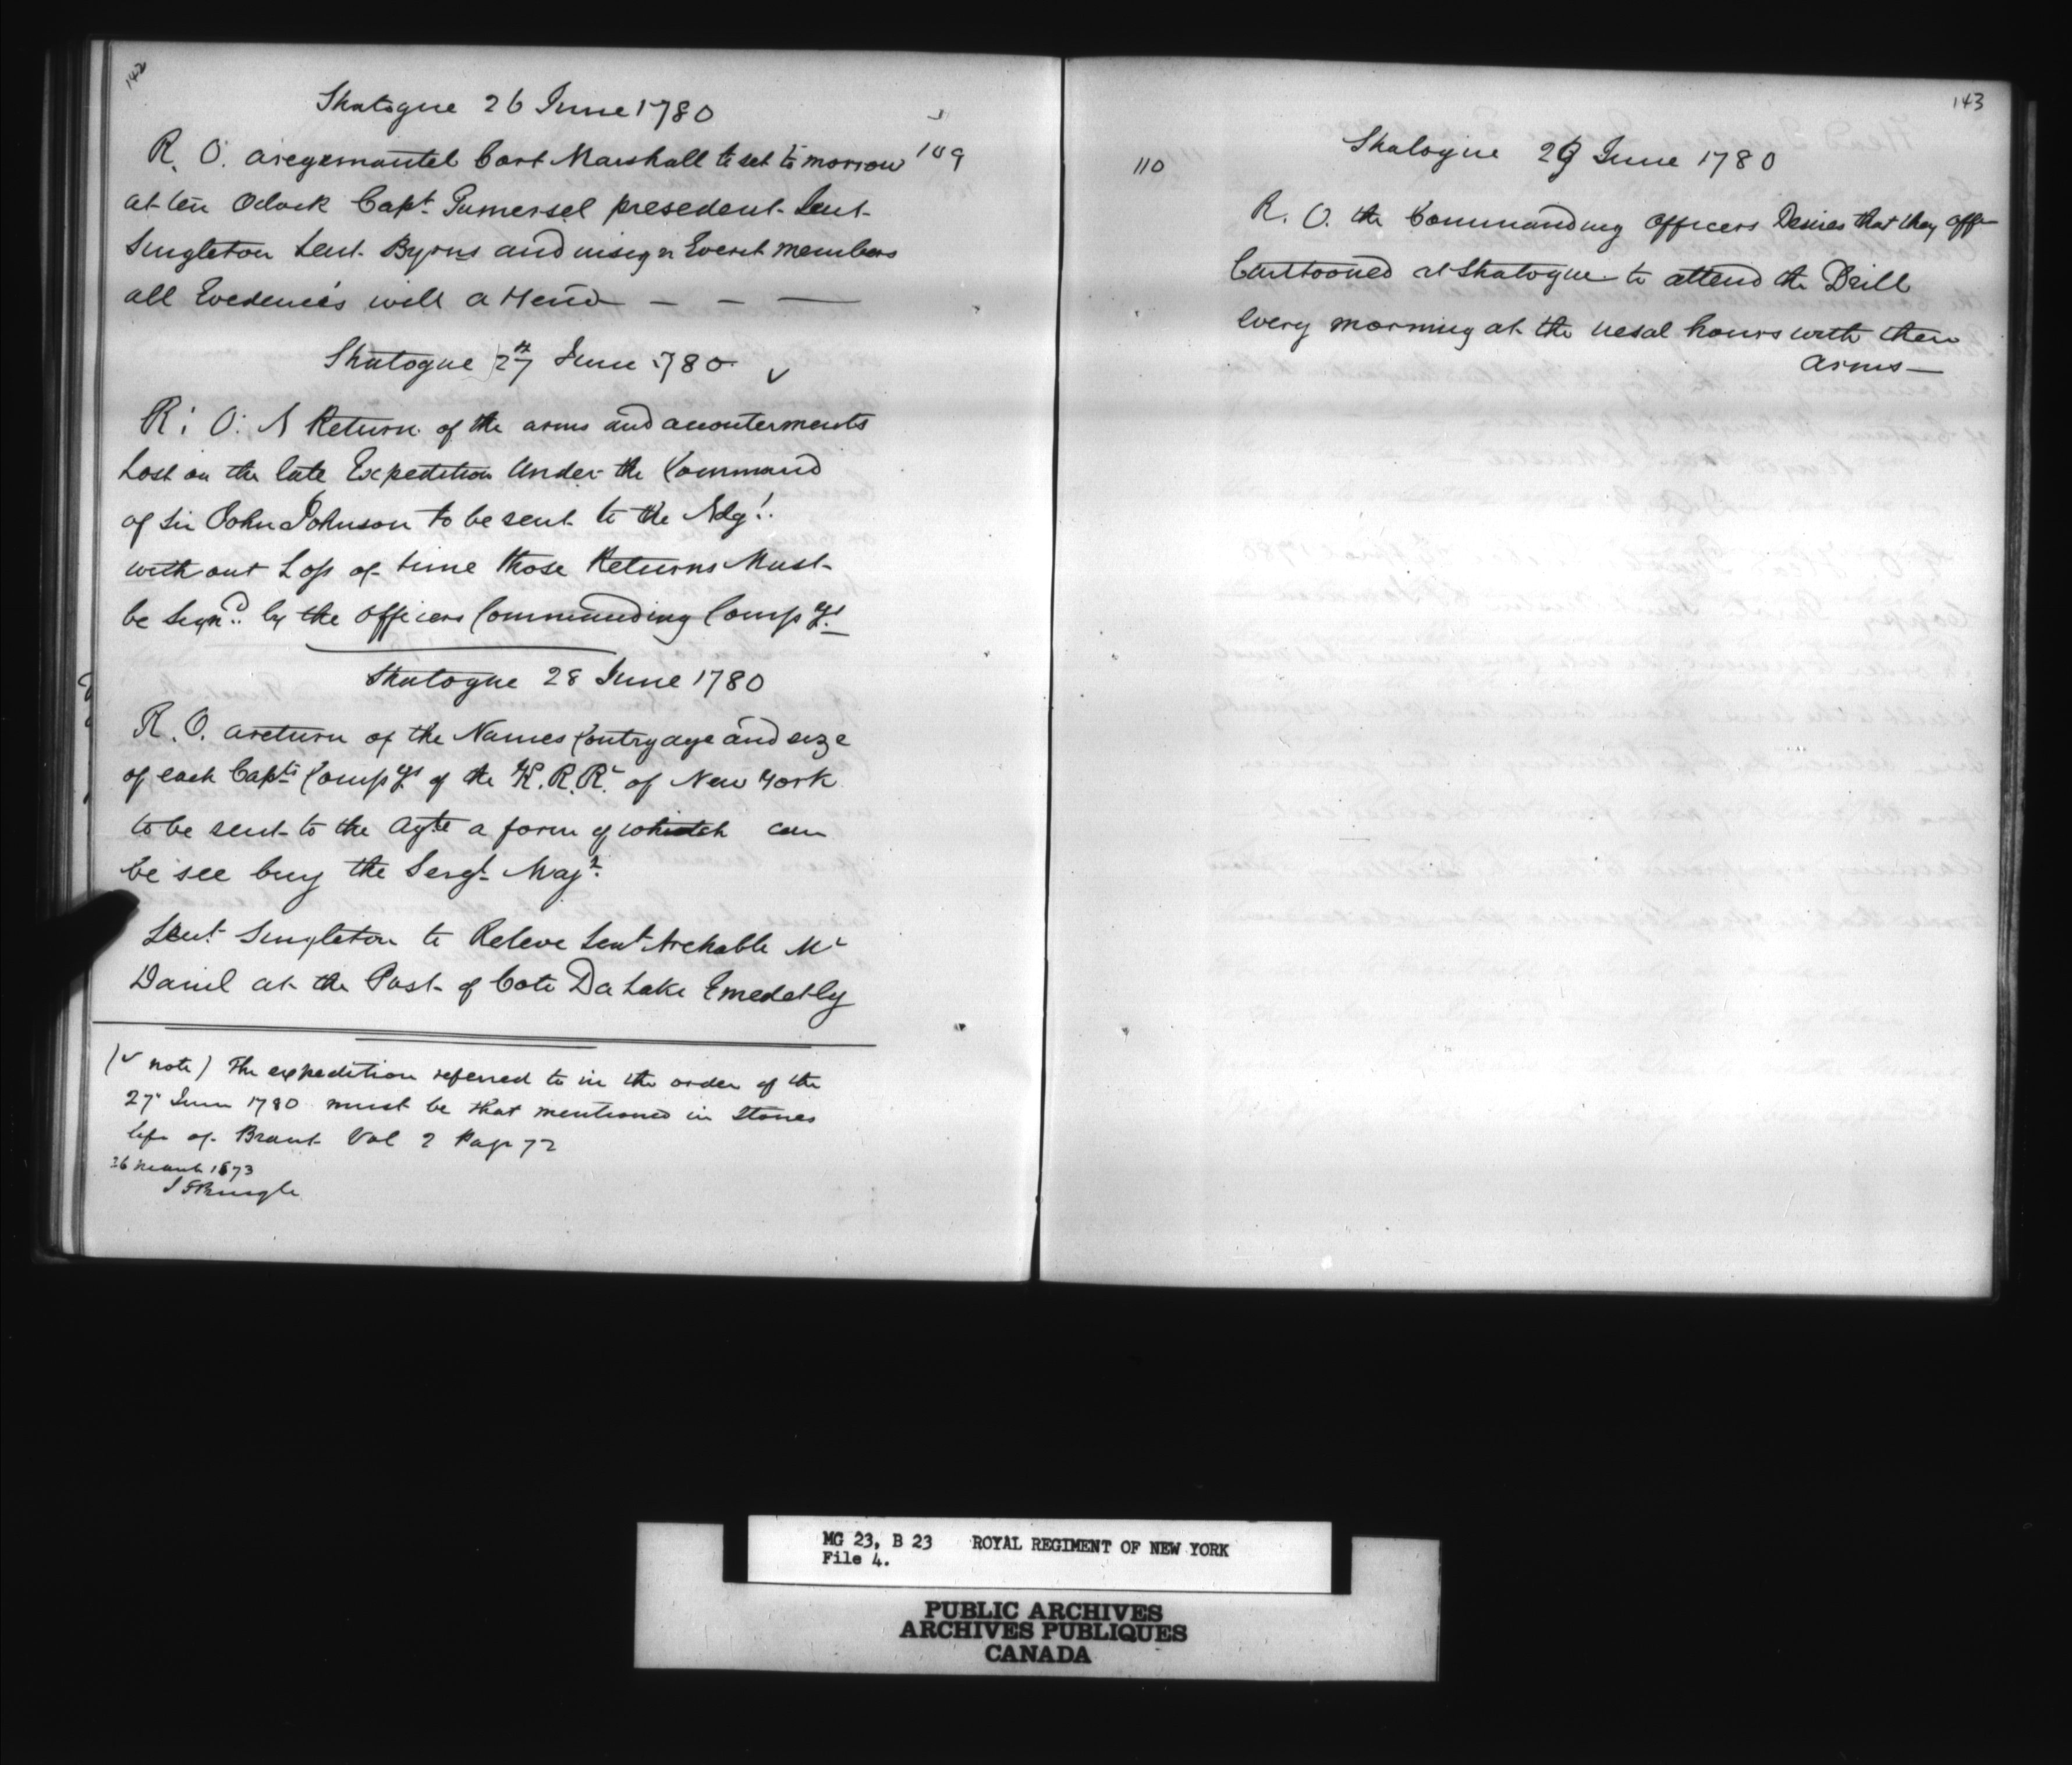 142
Shatogue 26 June 1780
R. O. aregemantel Cort Marshall to set to morrow 109
at ten Oclock Capt. Gumersel presedent Leut
Singleton Leut. Byrns and insign Everet members
all Evedences will attend — — —
Shatogue 27th June 1780 ✓
R: O: A Return of the arms and accouterments
Lost on the late Expedition Under the Command
of Sir John Johnson to be sent to the Adgt.
with out Loss of time those Returns Must
be signd. by the officers Commanding Compys.
Shatogue 28 June 1780
R. O. a return of the Names Contry age and size
of each Capts Compys of the K. R. Rt. of New York
to be sent to the Agte a form of which can
be see buy the Sergt Majr.
Leut Singleton to Releve Leut Archable Mc
Daniel at the Post of Cote Da Lake Emedatly
(✓ note) The expedition referred to in the order of the
27 June 1780 must be that mentioned in Stones
life of Brant Vol 2 Page 72
26 March 1873
J F Pringle
143
110
Shatogue 29 June 1780
R. O. the Commanding officers Desires that they offr
Canttooned at Shatogue to attend the Drill
every morning at the uesal hours with their
arms —
MG 23, B 23 ROYAL REGIMENT OF NEW YORK
File 4.
PUBLIC ARCHIVES
ARCHIVES PUBLIQUES
CANADA